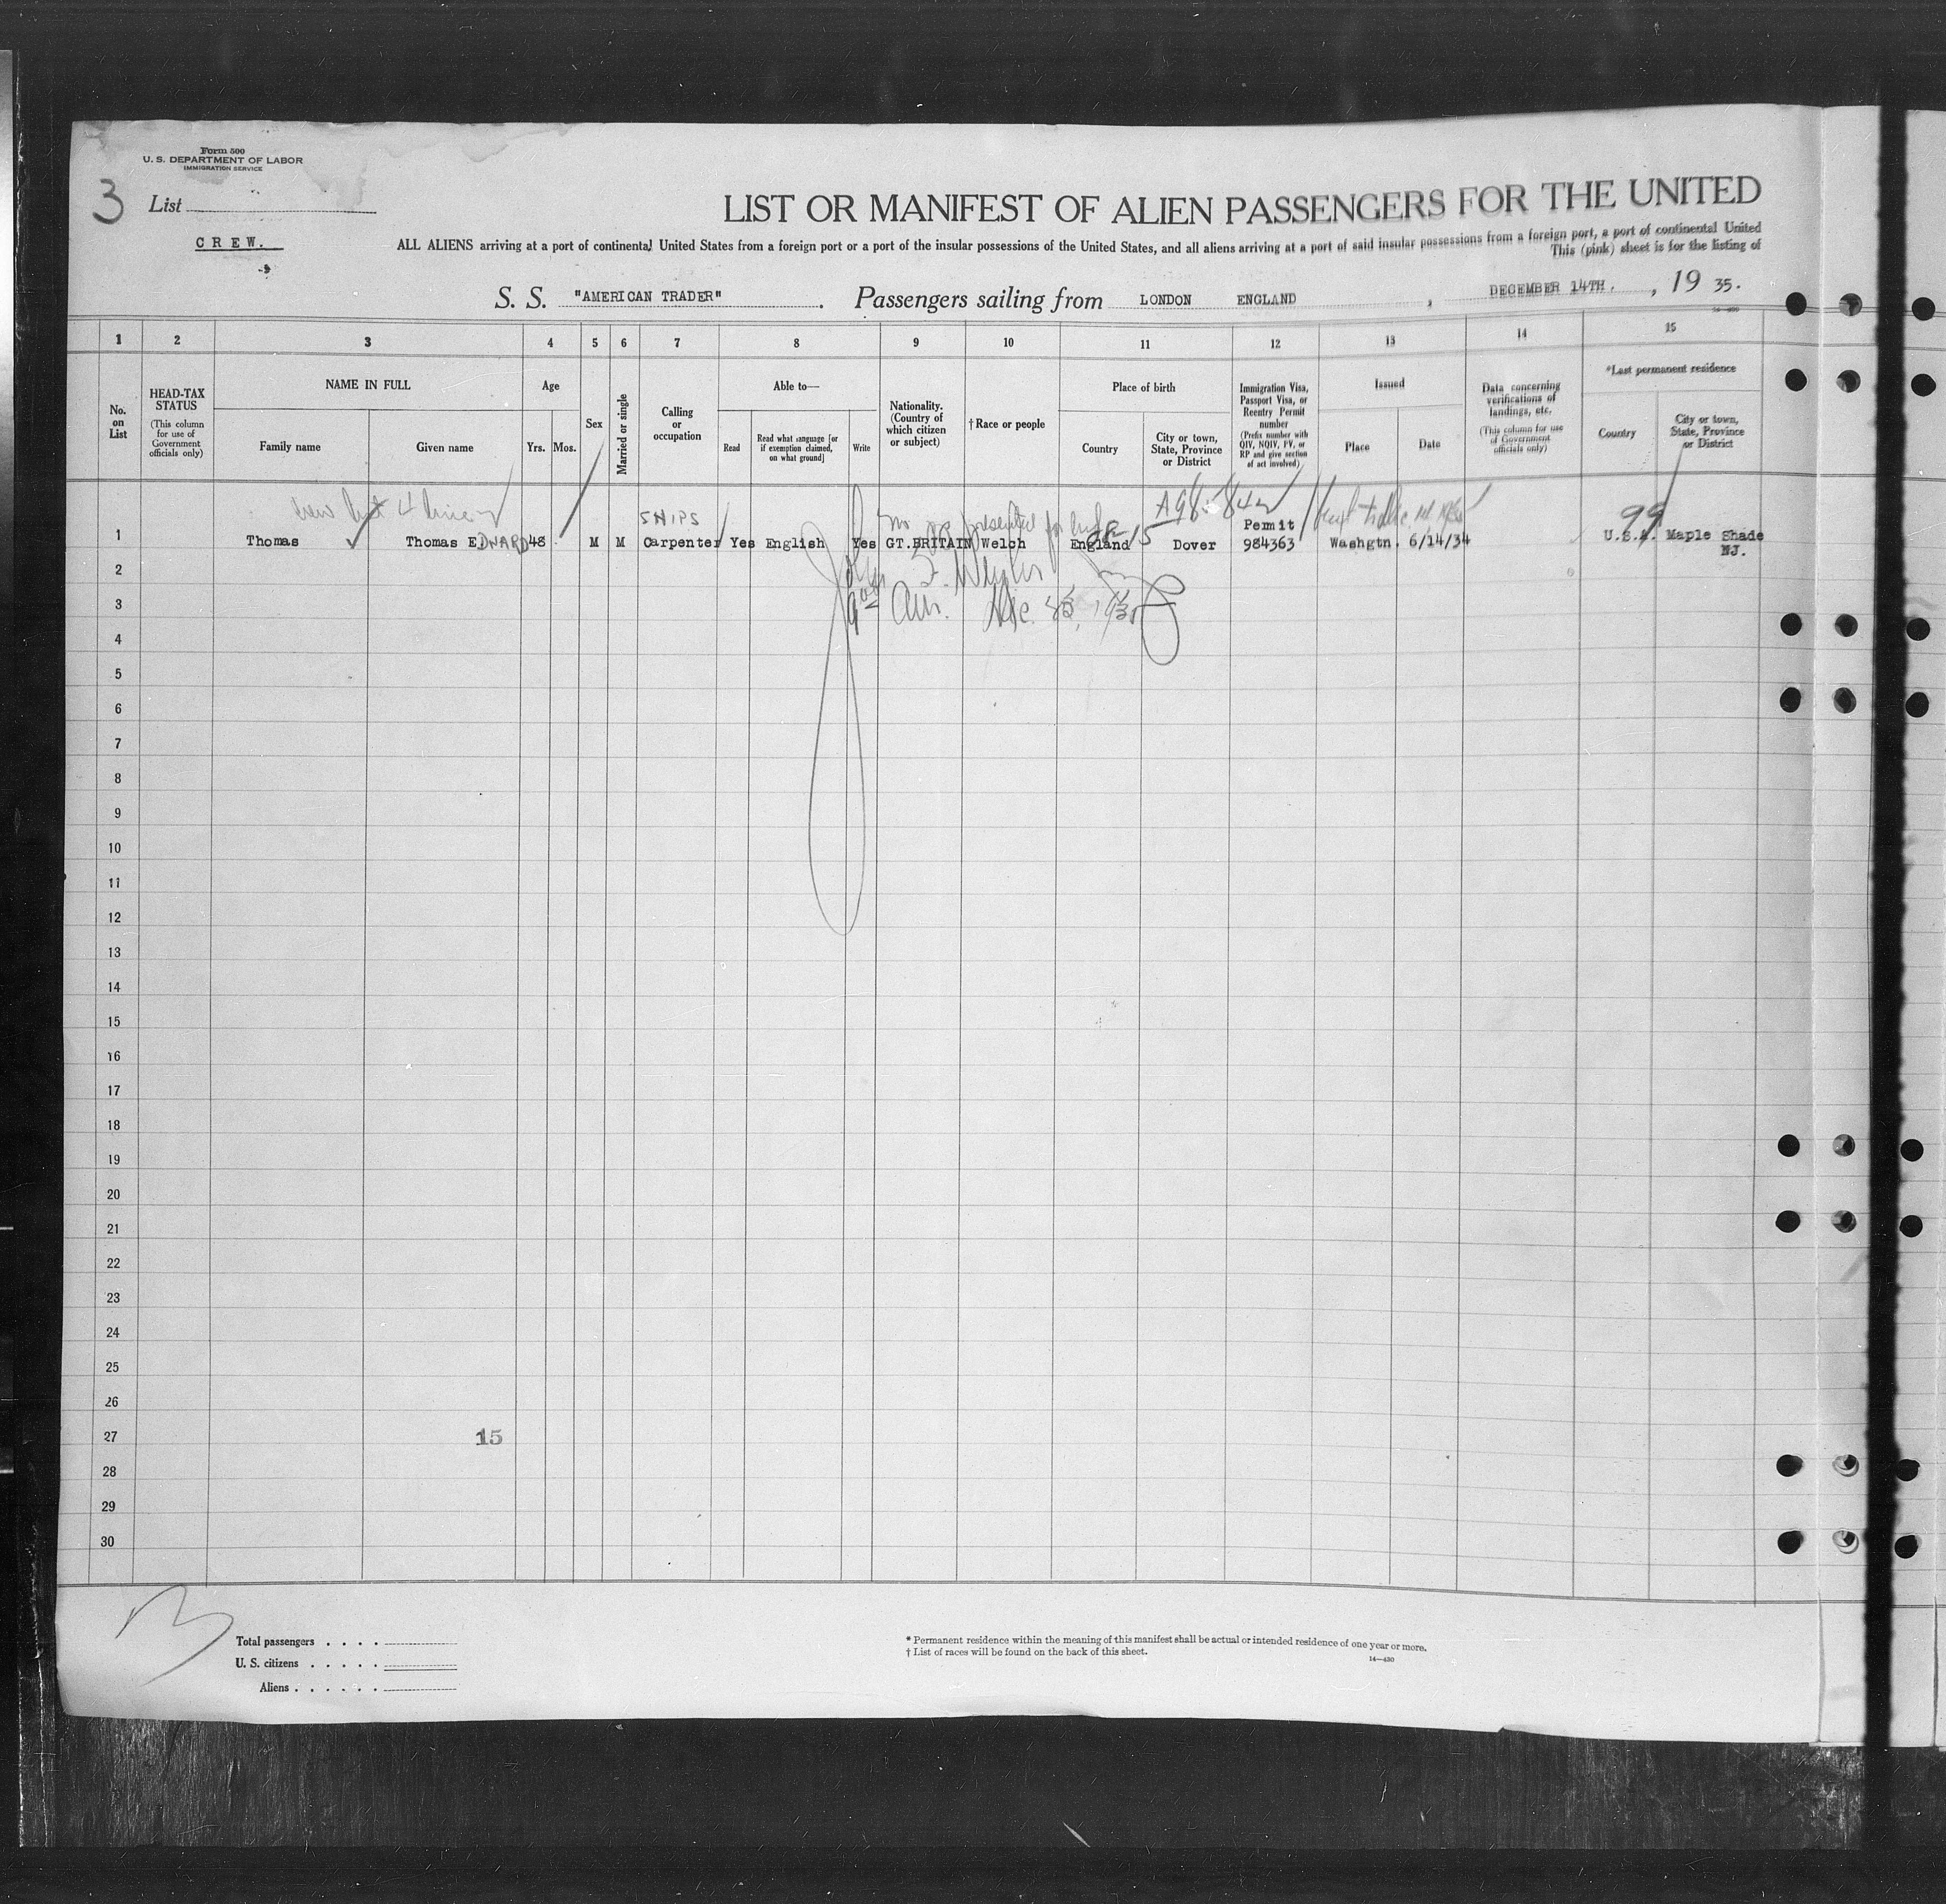 Form 500
U. S. DEPARTMENT OF LABOR
IMMIGRATION SERVICE
3 List
CREW.
LIST OR MANIFEST OF ALIEN PASSENGERS FOR THE UNITED
ALL ALIENS arriving at a port of continental United States from a foreign port or a port of the insular possessions of the United States, and all aliens arriving at a port of said insular possessions from a foreign port, a port of continental United
This (pink) sheet is for the listing of
S. S. "AMERICAN TRADER" . Passengers sailing from LONDON ENGLAND , DECEMBER 14TH. , 19 35.
1 2 3 4 5 6 7 8 9 10 11 12 13 14 15
No. on List
HEAD-TAX STATUS
(This column for use of Government officials only)
NAME IN FULL
Family name
Given name
Age
Yrs. Mos.
Sex
Married or single
Calling or occupation
Able to—
Read
Read what language [or if exemption claimed, on what ground]
Write
Nationality. (Country of which citizen or subject)
†Race or people
Place of birth
Country
City or town, State, Province or District
Immigration Visa, Passport Visa, or Reentry Permit number
(Prefix number with QIV, NQIV, PV, or RP and give section of act involved)
Issued
Place
Date
Data concerning verifications of landings, etc.
(This column for use of Government officials only)
*Last permanent residence
Country
City or town, State, Province or District
SHIPS
Permit
99
1 Thomas Thomas EDWARD 48 M M Carpenter Yes English Yes GT.BRITAIN Welch England Dover 984363 Washgtn. 6/14/34 U.S.A. Maple Shade
NJ.
2
3
4
5
6
7
8
9
10
11
12
13
14
15
16
17
18
19
20
21
22
23
24
25
26
27 15
28
29
30
Total passengers . . . .
U. S. citizens . . . . .
Aliens . . . . . .
* Permanent residence within the meaning of this manifest shall be actual or intended residence of one year or more.
† List of races will be found on the back of this sheet.
14—430